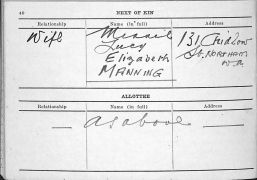 40
NEXT OF KIN
Relationship Name (in full) Address
Wife Minnie 131 Chidlow
Lucy St. NORTHAM
Elizabeth W.A.
MANNING
ALLOTTEE
Relationship Name (in full) Address
— as above —